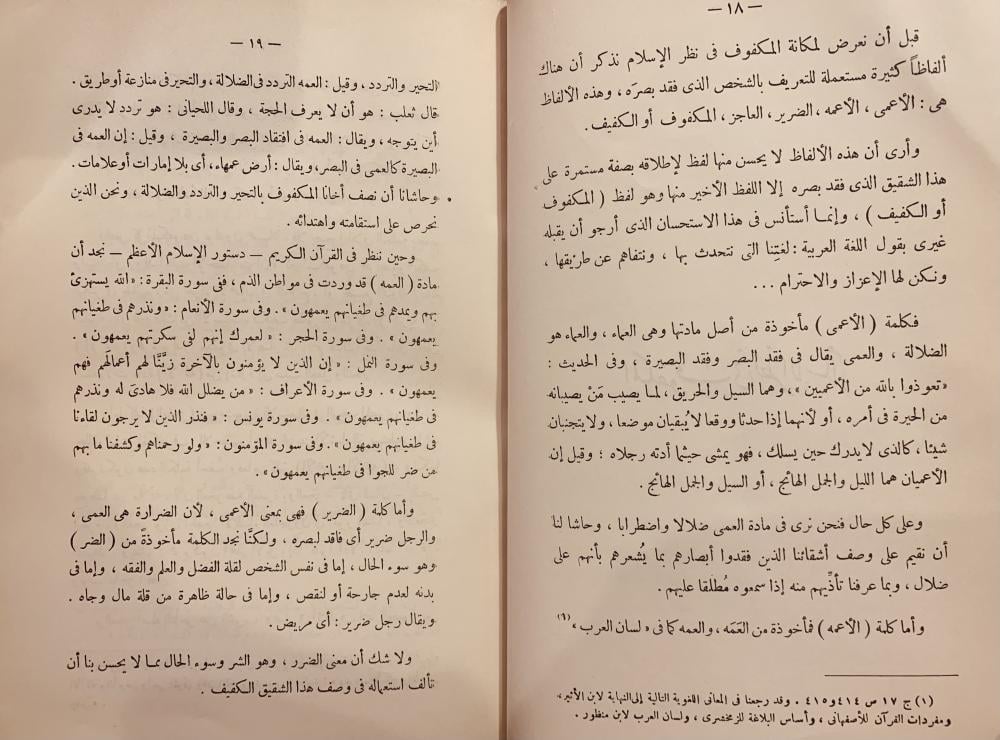 — ١٨ —
قبل أن نعرض لمكانة المكفوف فى نظر الإسلام نذكر أن هناك
ألفاظاً كثيرة مستعملة للتعريف بالشخص الذى فقد بصره ، وهذه الألفاظ
هى : الأعمى ، الأعمه ، الضرير ، العاجز ، المكفوف أو الكفيف .
وأرى أن هذه الألفاظ لا يحسن منها لفظ لإطلاقه بصفة مستمرة على
هذا الشقيق الذى فقد بصره إلا اللفظ الأخير منها وهو لفظ ( المكفوف
أو الكفيف ) ، وإنما أستأنس فى هذا الاستحسان الذى أرجو أن يقبله
غيرى بقول اللغة العربية : لغتِنا التى نتحدث بها ، ونتفاهم عن طريقها ،
ونكن لها الإعزاز والاحترام ...
فكلمة ( الأعمى ) مأخوذة من أصل مادتها وهى العماء ، والعماء هو
الضلالة ، والعمى يقال فى فقد البصر وفقد البصيرة ، وفى الحديث :
« تعوذوا بالله من الأعميين » ، وهما السيل والحريق ، لما يصيب مَنْ يصيبانه
من الحيرة فى أمره ، أو لأنهما إذا حدثا ووقعا لا يُبقيان موضعا ، ولا يتجنبان
شيئا ، كالذى لا يدرك حين يسلك ، فهو يمشى حيثما أدته رجلاه ؛ وقيل إن
الأعميان هما الليل والجمل الهائج ، أو السيل والجمل الهائج .
وعلى كل حال فنحن نرى فى مادة العمى ضلالا واضطرابا ، وحاشا لنا
أن نقيم على وصف أشقائنا الذين فقدوا أبصارهم بما يُشعرهم بأنهم على
ضلال ، وبما عرفنا تأذِّيهم منه إذا سمعوه مُطلقا عليهم .
وأما كلمة ( الأعمه ) فمأخوذة من العَمَه ، والعمه كما فى « لسان العرب » (١)
(١) ج ١٧ ص ٤١٤ و ٤١٥ . وقد رجعنا فى المعانى اللغوية التالية إلى النهاية لابن الأثير ،
ومفردات القرآن للأصفهانى ، وأساس البلاغة للزمخشرى ، ولسان العرب لابن منظور .
— ١٩ —
التحير والتردد ، وقيل : العمه التردد فى الضلالة ، والتحير فى منازعة أو طريق .
قال ثعلب : هو أن لا يعرف الحجة ، وقال اللحيانى : هو تردد لا يدرى
أين يتوجه ، ويقال : العمه فى افتقاد البصر والبصيرة ، وقيل : إن العمه فى
البصيرة كالعمى فى البصر ، ويقال : أرض عمهاء ، أى بلا إمارات أو علامات .
وحاشانا أن نصف أخانا المكفوف بالتحير والتردد والضلالة ، ونحن الذين
نحرص على استقامته واهتدائه .
وحين ننظر فى القرآن الكريم — دستور الإسلام الأعظم — نجد أن
مادة ( العمه ) قد وردت فى مواطن الذم ، ففى سورة البقرة : « الله يستهزئ
بهم ويمدهم فى طغيانهم يعمهون » . وفى سورة الأنعام : « ونذرهم فى طغيانهم
يعمهون » . وفى سورة الحجر : « لعمرك إنهم لفى سكرتهم يعمهون » .
وفى سورة النمل : « إن الذين لا يؤمنون بالآخرة زيَّنَّا لهم أعمالَهم فهم
يعمهون » . وفى سورة الأعراف : « من يضلل الله فلا هادىَ له ونذرهم
فى طغيانهم يعمهون » . وفى سورة يونس : « فنذر الذين لا يرجون لقاءنا
فى طغيانهم يعمهون » . وفى سورة المؤمنون : « ولو رحمناهم وكشفنا ما بهم
من ضر للجوا فى طغيانهم يعمهون » .
وأما كلمة ( الضرير ) فهى بمعنى الأعمى ، لأن الضرارة هى العمى ،
والرجل ضرير أى فاقد لبصره ، ولكنَّا نجد الكلمة مأخوذةً من ( الضر )
وهو سوء الحال ، إما فى نفس الشخص لقلة الفضل والعلم والفقه ، وإما فى
بدنه لعدم جارحة أو لنقص ، وإما فى حالة ظاهرة من قلة مال وجاه .
ويقال رجل ضرير : أى مريض .
ولا شك أن معنى الضرر ، وهو الشر وسوء الحال مما لا يحسن بنا أن
نألف استعماله فى وصف هذا الشقيق الكفيف .